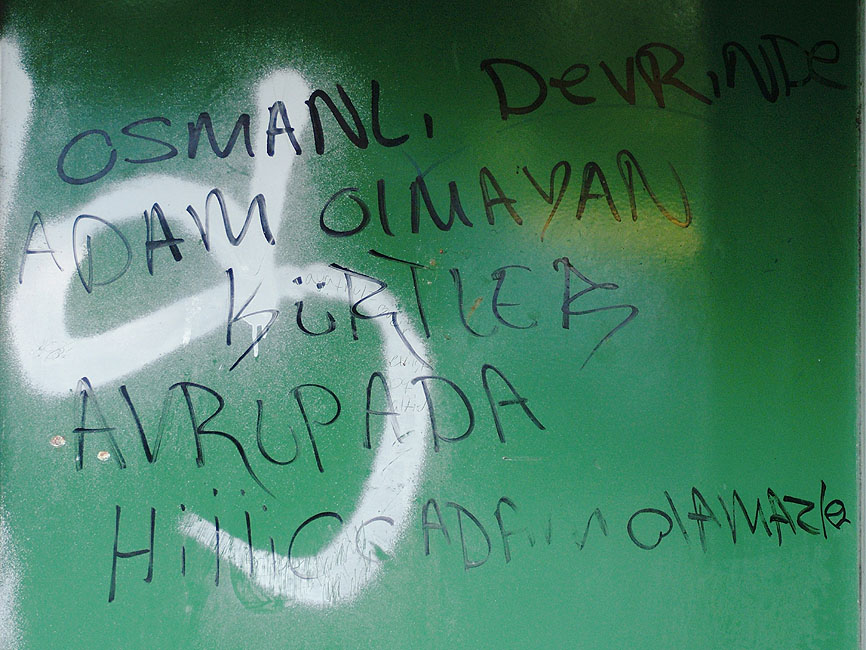 OSMANLI DeVRiNDe
ADAM OlMAYAN
KÜRTLER
AVRUPADA
HiiiiCC ADAm olAMAZlar